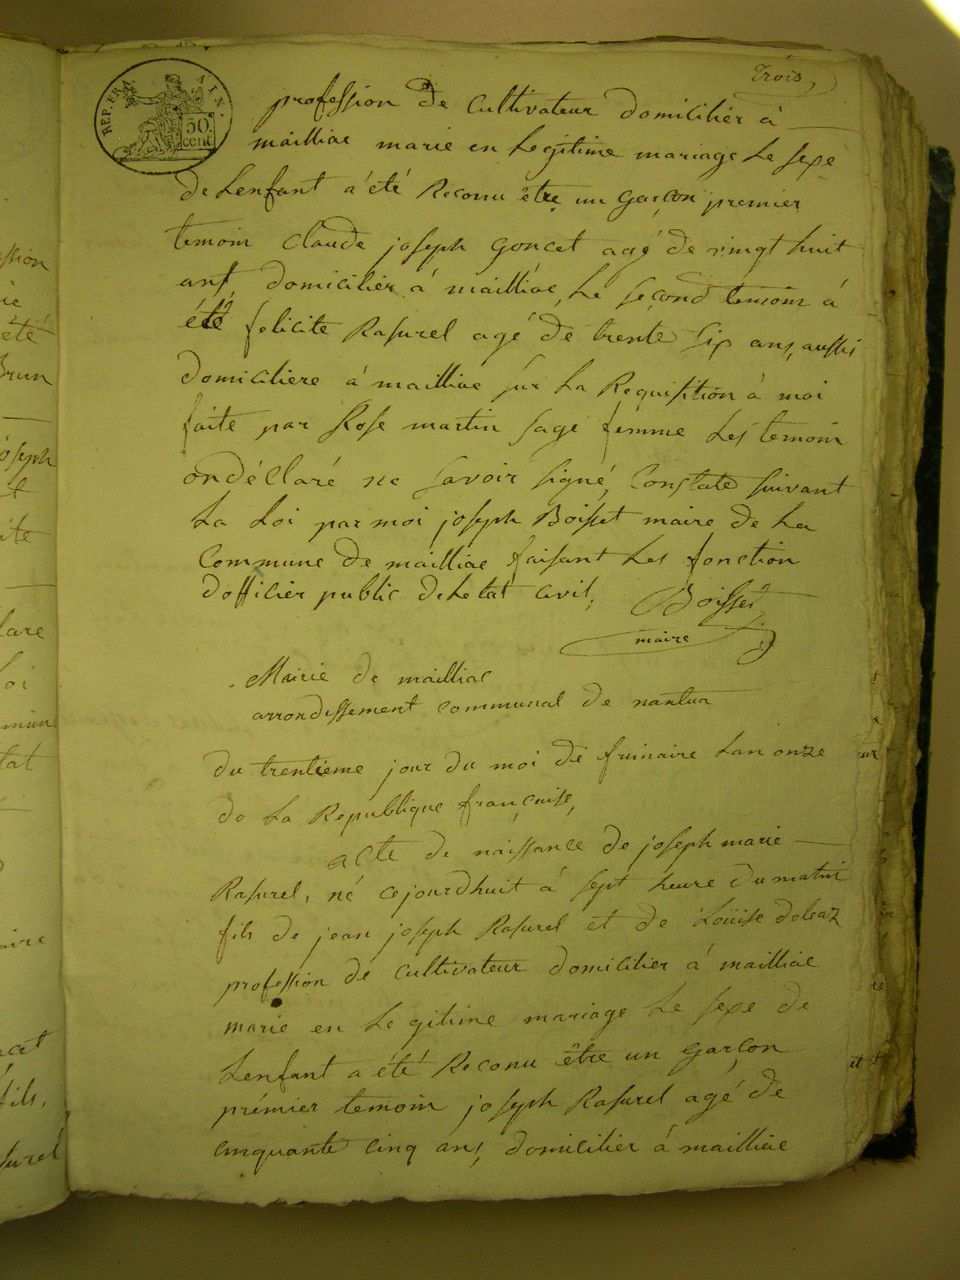 Trois,
REP. FRA. AIN.
50 cent
profession de cultivateur domicilier à
mailliac marie en Legitime mariage Le sexe
de Lenfant a été Reconu être un garçon premier
temoin Claude joseph goncet agé de vingt huit
ans, domicilier á mailliac, Le second temoin á
été felicite Rasurel agé de trente six ans, aussi
domiciliere á mailliac sur La Requisition à moi
faite par Rose martin sage femme Les temoin
ondéllaré ne savoir signé, Constaté suivant
La Loi par moi joseph Boisset maire de La
Commune de mailliac faisant Les fonction
dofficier public de Letat Civil,
Boisset
maire
Mairie de mailliac
arrondissement communal de nantua
du trentieme jour du moi de frimaire Lan onze
de La Republique française,
acte de naissance de joseph marie
Rasurel, né cejourdhuit á sept heure du matin
fils de jean joseph Rasurel et de Louise
profession de cultivateur domicilier á mailliac
marie en Legitime mariage Le sexe de
Lenfant a été Reconu être un garçon
prémier temoin joseph Rasurel agé de
cinquante cinq ans, domicilier á mailliac